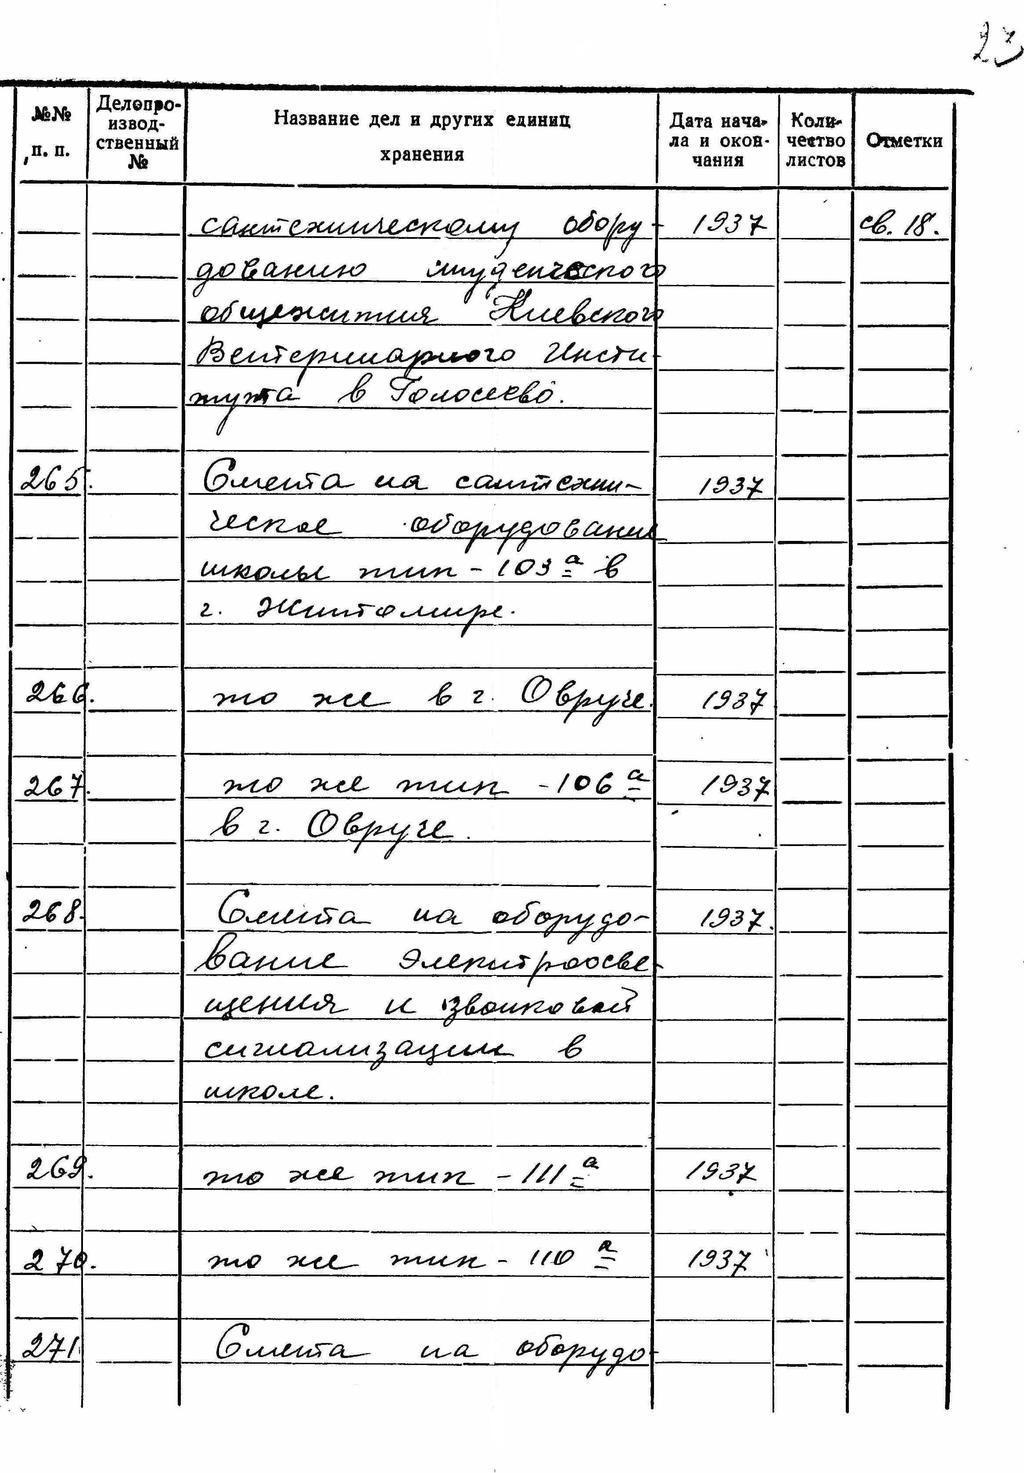 23
№№ п. п. Делопроизводственный № Название дел и других единиц хранения Дата начала и окончания Количество листов Отметки
сантехническому обору- 1937 св. 18.
дованию студенческого
общежития Киевского
Ветеринарного Инсти-
тута в Голосеево.
265. Смета на сантехни- 1937
ческое оборудование
школы тип - 103 а в
г. Житомире.
266. то же в г. Овруче. 1937
267. то же тип - 106 а 1937
в г. Овруче.
268. Смета на оборудо- 1937.
вание электроосве-
щения и звонковой
сигнализации в
школе.
269. то же тип - 111 а 1937
270. то же тип - 110 а 1937
271 Смета на оборудо-